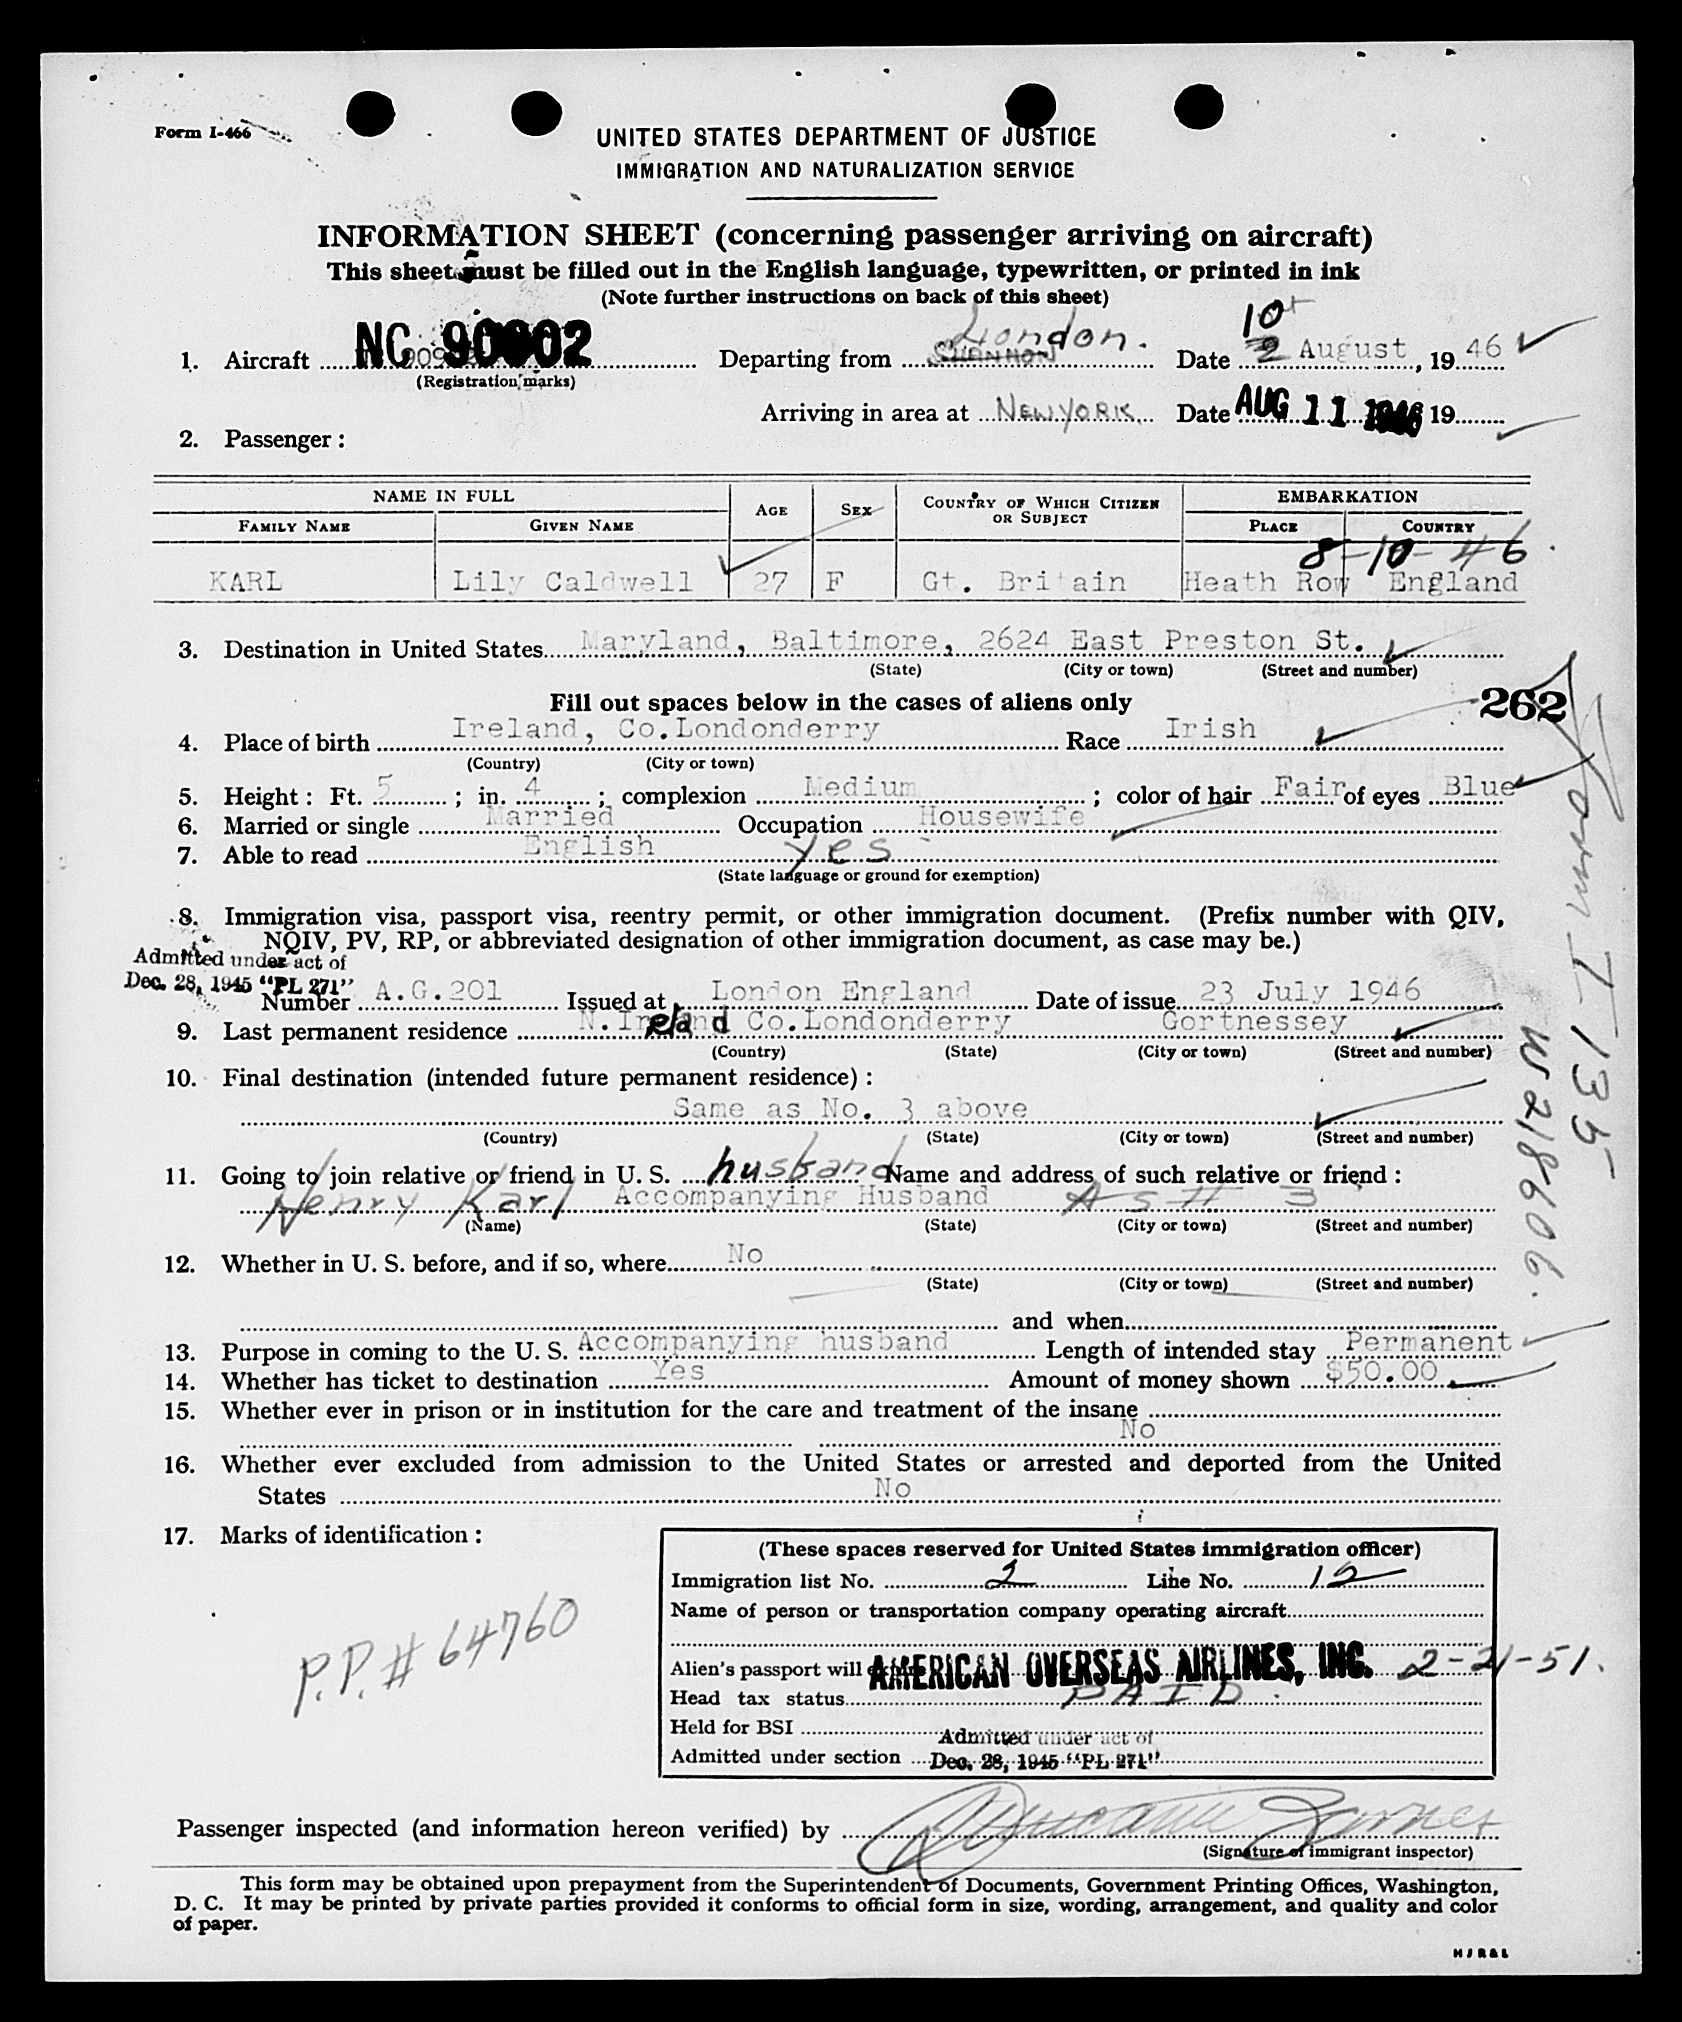 Form I-466
UNITED STATES DEPARTMENT OF JUSTICE
IMMIGRATION AND NATURALIZATION SERVICE
INFORMATION SHEET (concerning passenger arriving on aircraft)
This sheet must be filled out in the English language, typewritten, or printed in ink
(Note further instructions on back of this sheet)
1. Aircraft NC 90902 Departing from SHANNON London. Date 2 10 August, 19 46
(Registration marks)
Arriving in area at NEW YORK Date AUG 11 1946 19
2. Passenger:
NAME IN FULL EMBARKATION
FAMILY NAME GIVEN NAME AGE SEX COUNTRY OF WHICH CITIZEN OR SUBJECT PLACE COUNTRY
8-10-46
KARL Lily Caldwell 27 F Gt. Britain Heath Row England
3. Destination in United States Maryland, Baltimore, 2624 East Preston St.
(State) (City or town) (Street and number)
Fill out spaces below in the cases of aliens only 262
4. Place of birth Ireland, Co.Londonderry Race Irish
(Country) (City or town)
5. Height: Ft. 5; in. 4; complexion Medium; color of hair Fair of eyes Blue
6. Married or single Married Occupation Housewife
7. Able to read English yes
(State language or ground for exemption)
8. Immigration visa, passport visa, reentry permit, or other immigration document. (Prefix number with QIV,
NQIV, PV, RP, or abbreviated designation of other immigration document, as case may be.)
Admitted under act of
Dec. 28, 1945 "PL 271"
Number A.G.201 Issued at London England Date of issue 23 July 1946
9. Last permanent residence N.Ireland Co.Londonderry Gortnessey
(Country) (State) (City or town) (Street and number)
10. Final destination (intended future permanent residence):
Same as No. 3 above
(Country) (State) (City or town) (Street and number)
11. Going to join relative or friend in U. S. husband Name and address of such relative or friend:
Henry Karl Accompanying Husband As # 3
(Name) (State) (City or town) (Street and number)
12. Whether in U. S. before, and if so, where No
(State) (City or town) (Street and number)
and when
13. Purpose in coming to the U. S. Accompanying husband Length of intended stay Permanent
14. Whether has ticket to destination Yes Amount of money shown $50.00
15. Whether ever in prison or in institution for the care and treatment of the insane
No
16. Whether ever excluded from admission to the United States or arrested and deported from the United
States No
17. Marks of identification:
P.P. # 64760
(These spaces reserved for United States immigration officer)
Immigration list No. 2 Line No. 12
Name of person or transportation company operating aircraft
Alien's passport will AMERICAN OVERSEAS AIRLINES, INC. 2-21-51.
Head tax status PAID.
Held for BSI
Admitted under section Admitted under act of
Dec. 28, 1945 "PL 271"
Passenger inspected (and information hereon verified) by
(Signature of immigrant inspector)
This form may be obtained upon prepayment from the Superintendent of Documents, Government Printing Offices, Washington,
D. C. It may be printed by private parties provided it conforms to official form in size, wording, arrangement, and quality and color
of paper.
Form I-135
W218606.